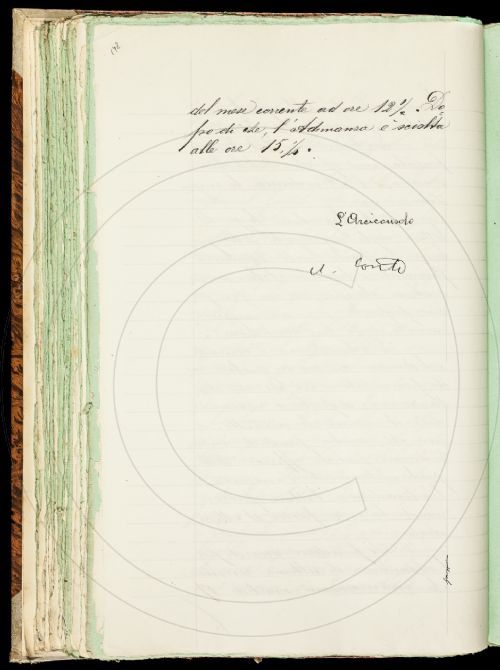 192
del mese corrente ad ore 12 ½. Do-
po di che, l'Adunanza è sciolta
alle ore 15,½.
L'Arciconsolo
A. Conti